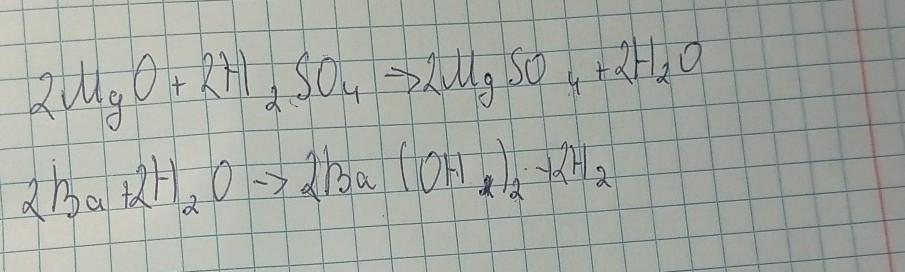 2MgO + 2H₂SO₄ → 2MgSO₄ + 2H₂O
2Ba + 2H₂O → 2Ba(OH)₂ + 2H₂